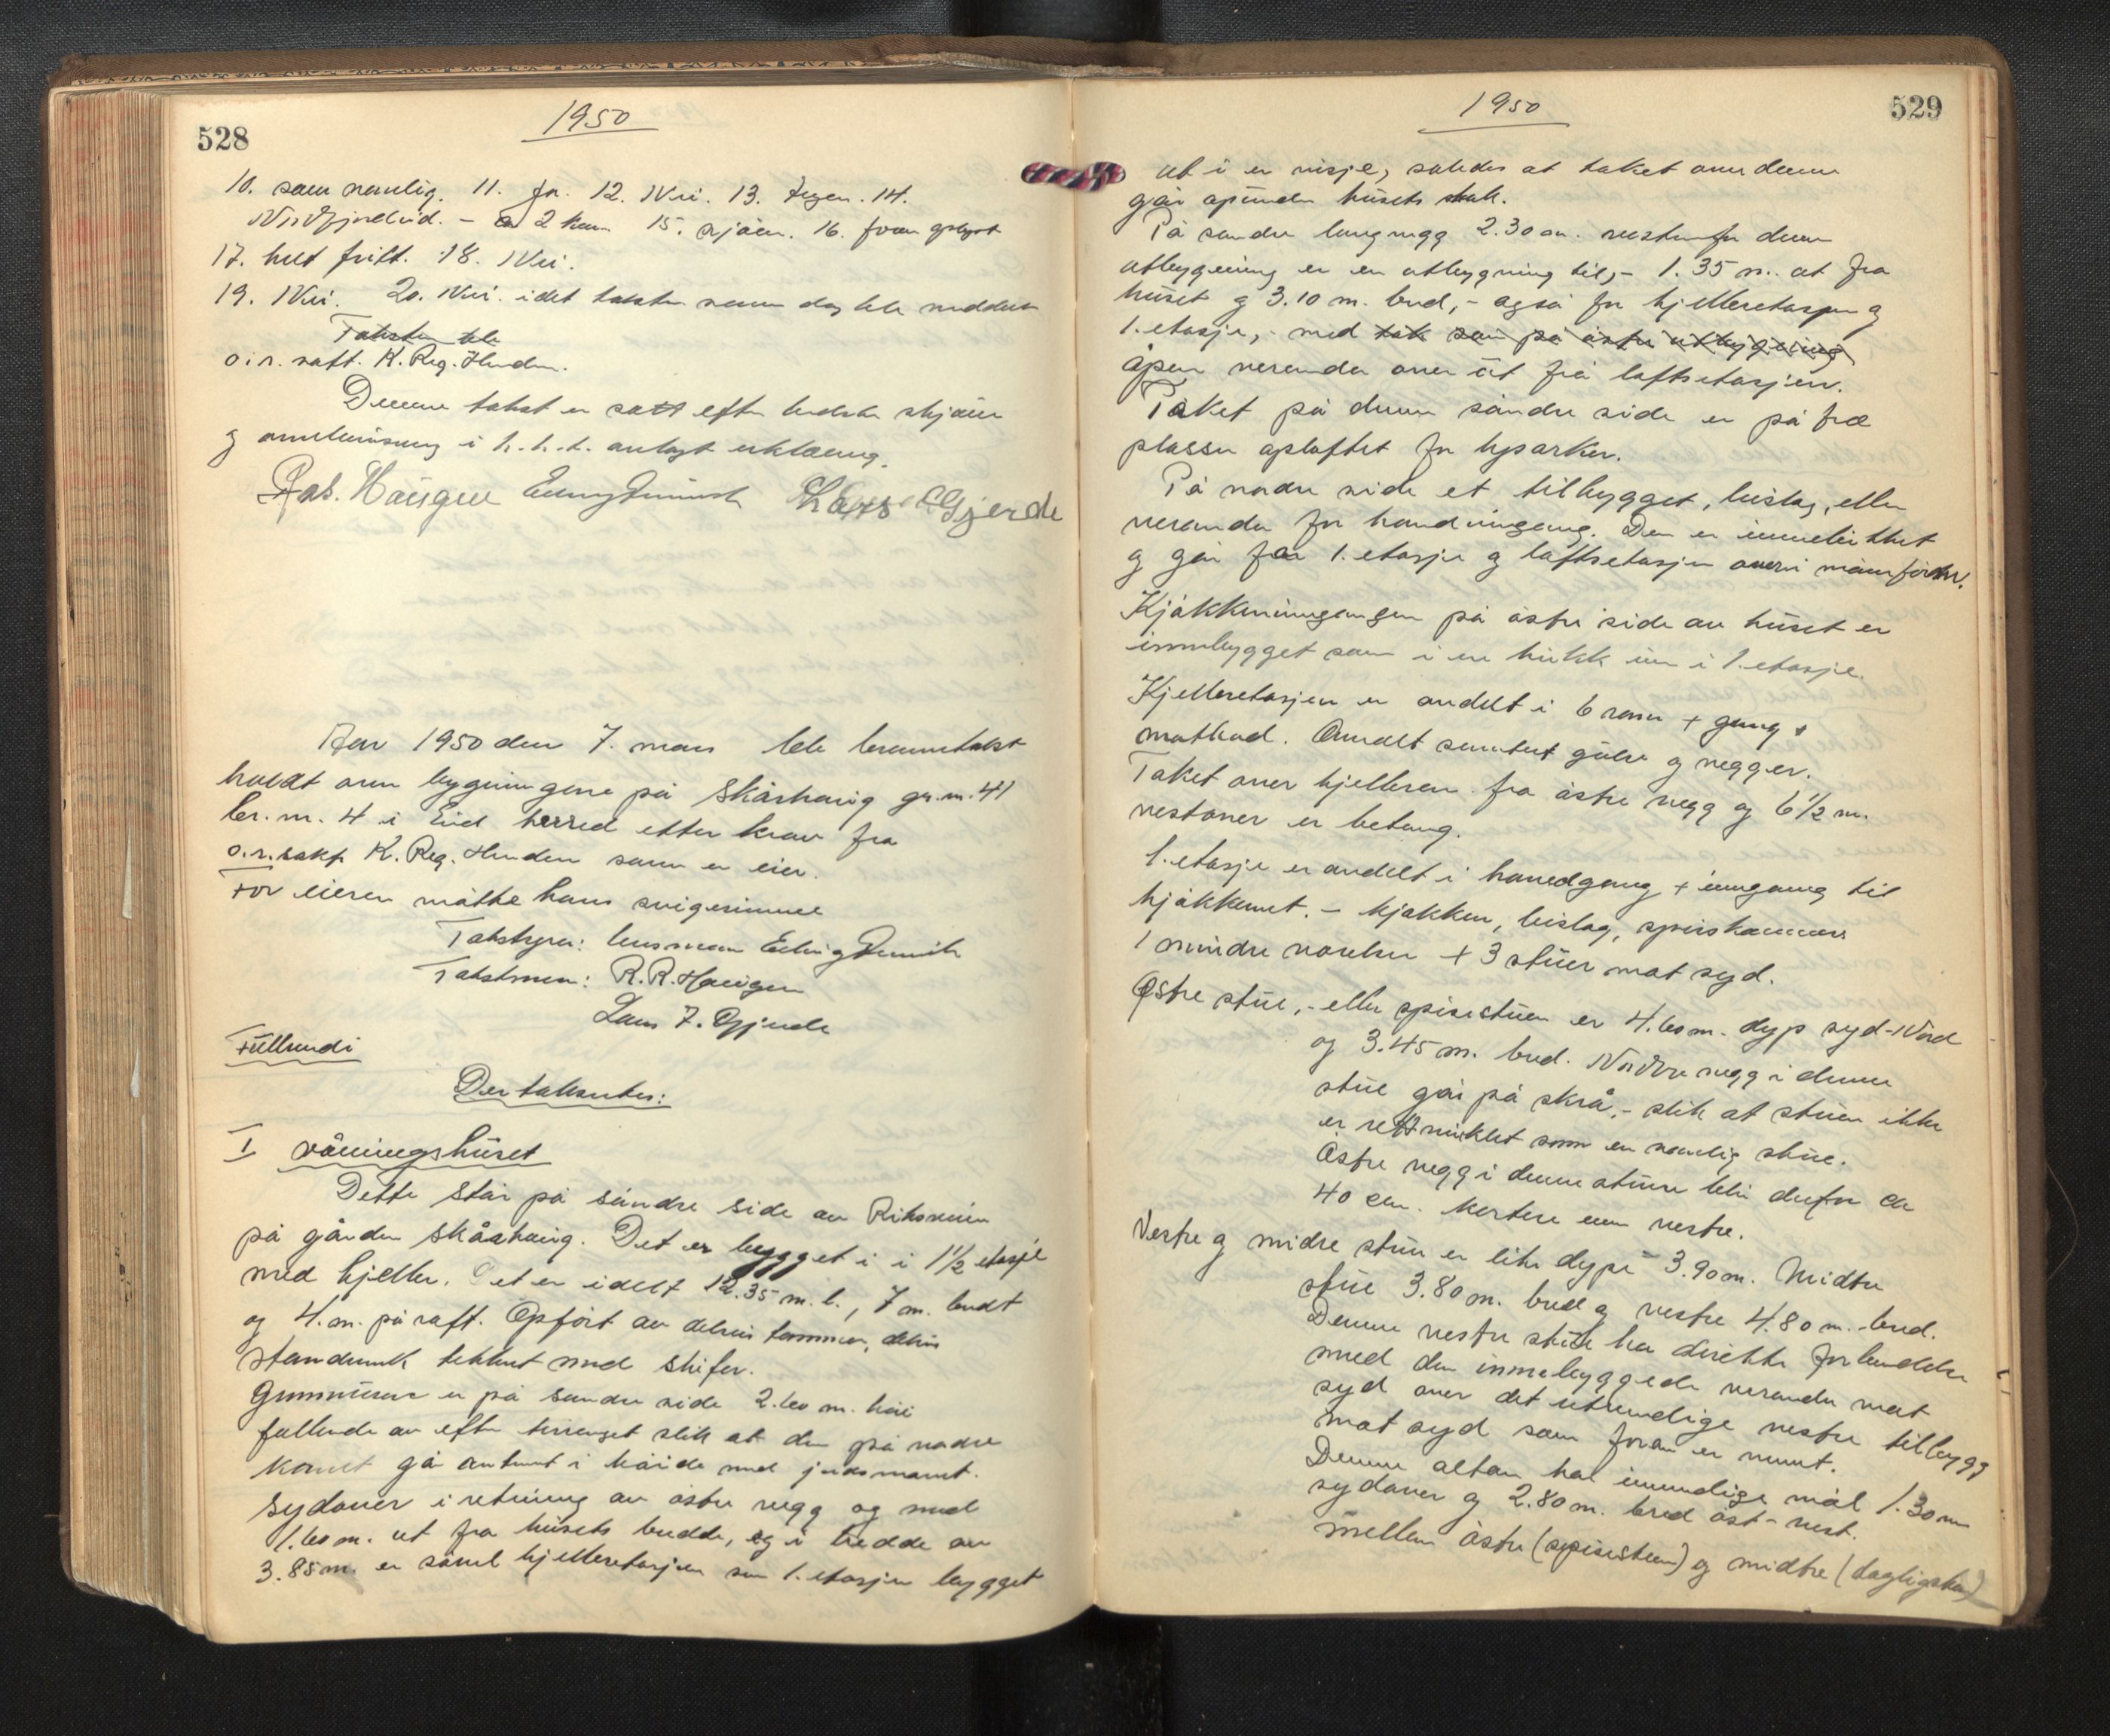 528
1950
10. som vanlig. 11. Ja. 12. Nei. 13. Ingen. 14.
Nordfjordeid. - ca 2 km. 15. sjöen. 16. foran oplyst
17. helt fritt. 18. Nei.
19. Nei. 20. Nei. idet taksten samme dag ble meddelt
Taksten ble
o.r.sakf. K. Reg. Hunden.
Denne takst er satt efter bedste skjönn
og overbevisning i h.h.t. avlagt erklæring.
Ras. Haugen Erling Lars Gjerde
Aar 1950 den 7. mars ble branntakst
holdt over bygningene på Skårhaug gr.nr. 41
br.nr. 4 i Eid herred etter krav fra
o.r.sakf. K. Reg. Hunden som er eier.
For eieren møtte hans svigerinne
Takstyrer: lensmann Erling
Takstmenn: R.R. Haugen
Lars J. Gjerde
Fullendi
Der takseres:
I våningshuset
Dette står på söndre side av Riksveien
på gården Skårhaug. Det er bygget i i 1½ etasje
med kjeller. Det er idelt 12.35 m. l., 7 m. bredt
og 4. m. på raft. Opfört av delvis tømmer, delvis
standverk tekket med skifer.
Grunnmuren er på söndre side 2.60 m. höi
fallende av efter terrenget slik at den på nordre
kant går omtrent i höide med jordsmonnet.
Sydover i retning av östre vegg og med
1.60 m. ut fra husets bredde, og i bredde av
3.85 m. er såvel kjelleretasjen som 1. etasjen bygget
529
1950
ut i en nisje, således at taket over denne
går opunder husets tak.
På söndre langvegg 2.30 m. vestenfor denne
utbygning er en utbygning til, - 1.35 m. ut fra
huset og 3.10 m. bred, - også for kjelleretasjen og
1. etasje, - med tak som på östre utbygning
åpen veranda over ut frå loftsetasjen.
Taket på denne söndre side er på tre
plasser oploftet for lysarker.
På nordre side et tilbygget, bislag, eller
veranda for hovedinngang. Den er innelukket
og går for 1. etasje og loftsetasjen
Kjökkeninngangen på östre side av huset er
innebygget som i en krikk inn i 1. etasje.
Kjelleretasjen er avdelt i 6 rom + gang +
matbod. Overalt sementert gulv og vegger.
Taket over kjelleren fra östre vegg og 6½ m.
vestover er betong.
1. etasje er avdelt i hovedgang + inngang til
kjökkenet. - kjökken, bislag, spiskammer
1 mindre værelse + 3 stuer mot syd.
Östre stue, - eller spisestuen er 4.60 m. dyp syd-Nord
og 3.45 m. bred. Nordre vegg i denne
stue går på skrå, - slik at stuen ikke
er rettvinklet som en vanlig stue.
Östre vegg i denne stuen blir derfor ca
40 cm. kortere enn vestre.
Vestre og midre stue er like dype 3.90 m. Midtre
stue 3.80 m. bred og vestre 4.80 m. bred.
Denne vestre stue har direkte forbindelse
med den innebyggede veranda mot
syd over det utvendige vestre tilbygg
mot syd som foran er nevnt.
Denne altan har innvendige mål 1.30 m
sydover og 2.80 m. bred öst-vest.
mellem östre (spisestuen) og midtre (dagligstuen)